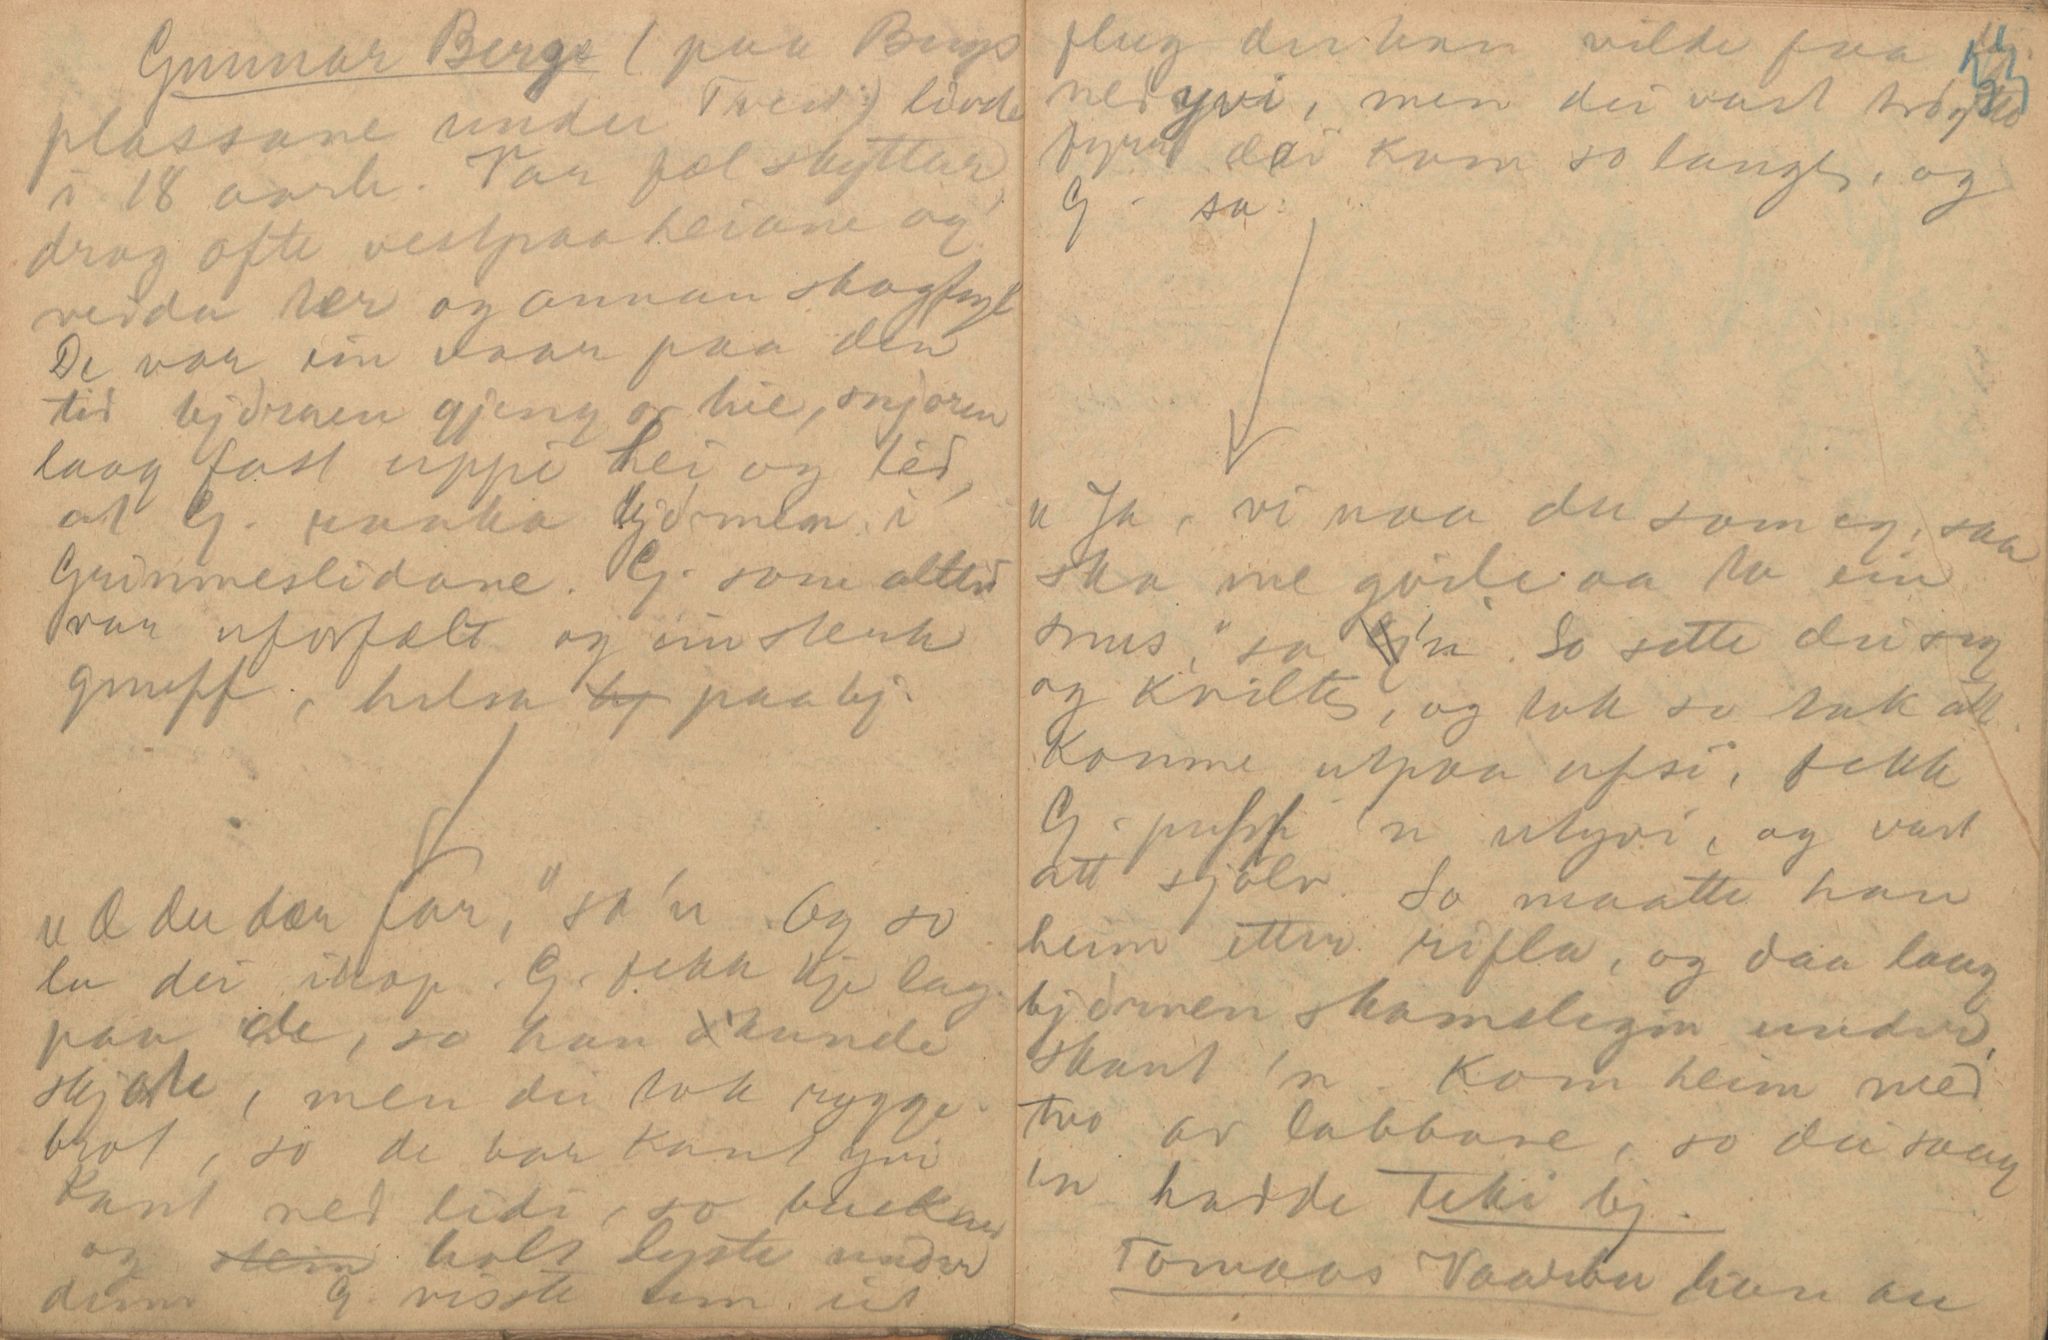 Gunnar Berge (paa Bergs
plassane under Tveit) livde
i 18 aarh. Var fæl skyttar,
drog ofte vestpaa heiane og
veidde der og annan skogfugl
De var ein vaar paa den
tid bjørnen gjeng or hie, snjoren
laag fast uppi hei og lid,
at G. raaka bjørnen i
Grimneslidane. G. som alltid
var uforfælt og ein sterk
gneff, helsa bj paa bj.
"Æ du dær far," sa'n. Og so
la dei ihop. G. fekk kje lag
paa de, so han kunde
skjote, men dei tok rygge-
brot, so de bar kant yvi
kant ned lidi, so buskane
og stein holt lyste under
deim. G. visste um eit
flug der han vilde faa bj.
nedyvi, men dei vart trøytte
fyrr dei kom so langt, og
G. sa:
"Ja, vi naa du som eg, saa
ska me gjeile aa ta ein
snus," sa G'n. So sette dei seg
og kvilte, og tok so tak att.
Komne utpaa upsi, fekk
G. puff 'n utyvi, og vart
att sjølv. So maatte han
heim etter rifla, og daa laag
bjørnen skamslegin under,
skaut 'n. Kom heim med
two av labbane, so dei saag
'n hadde teki bj.
Tomaas Vaarbu han au